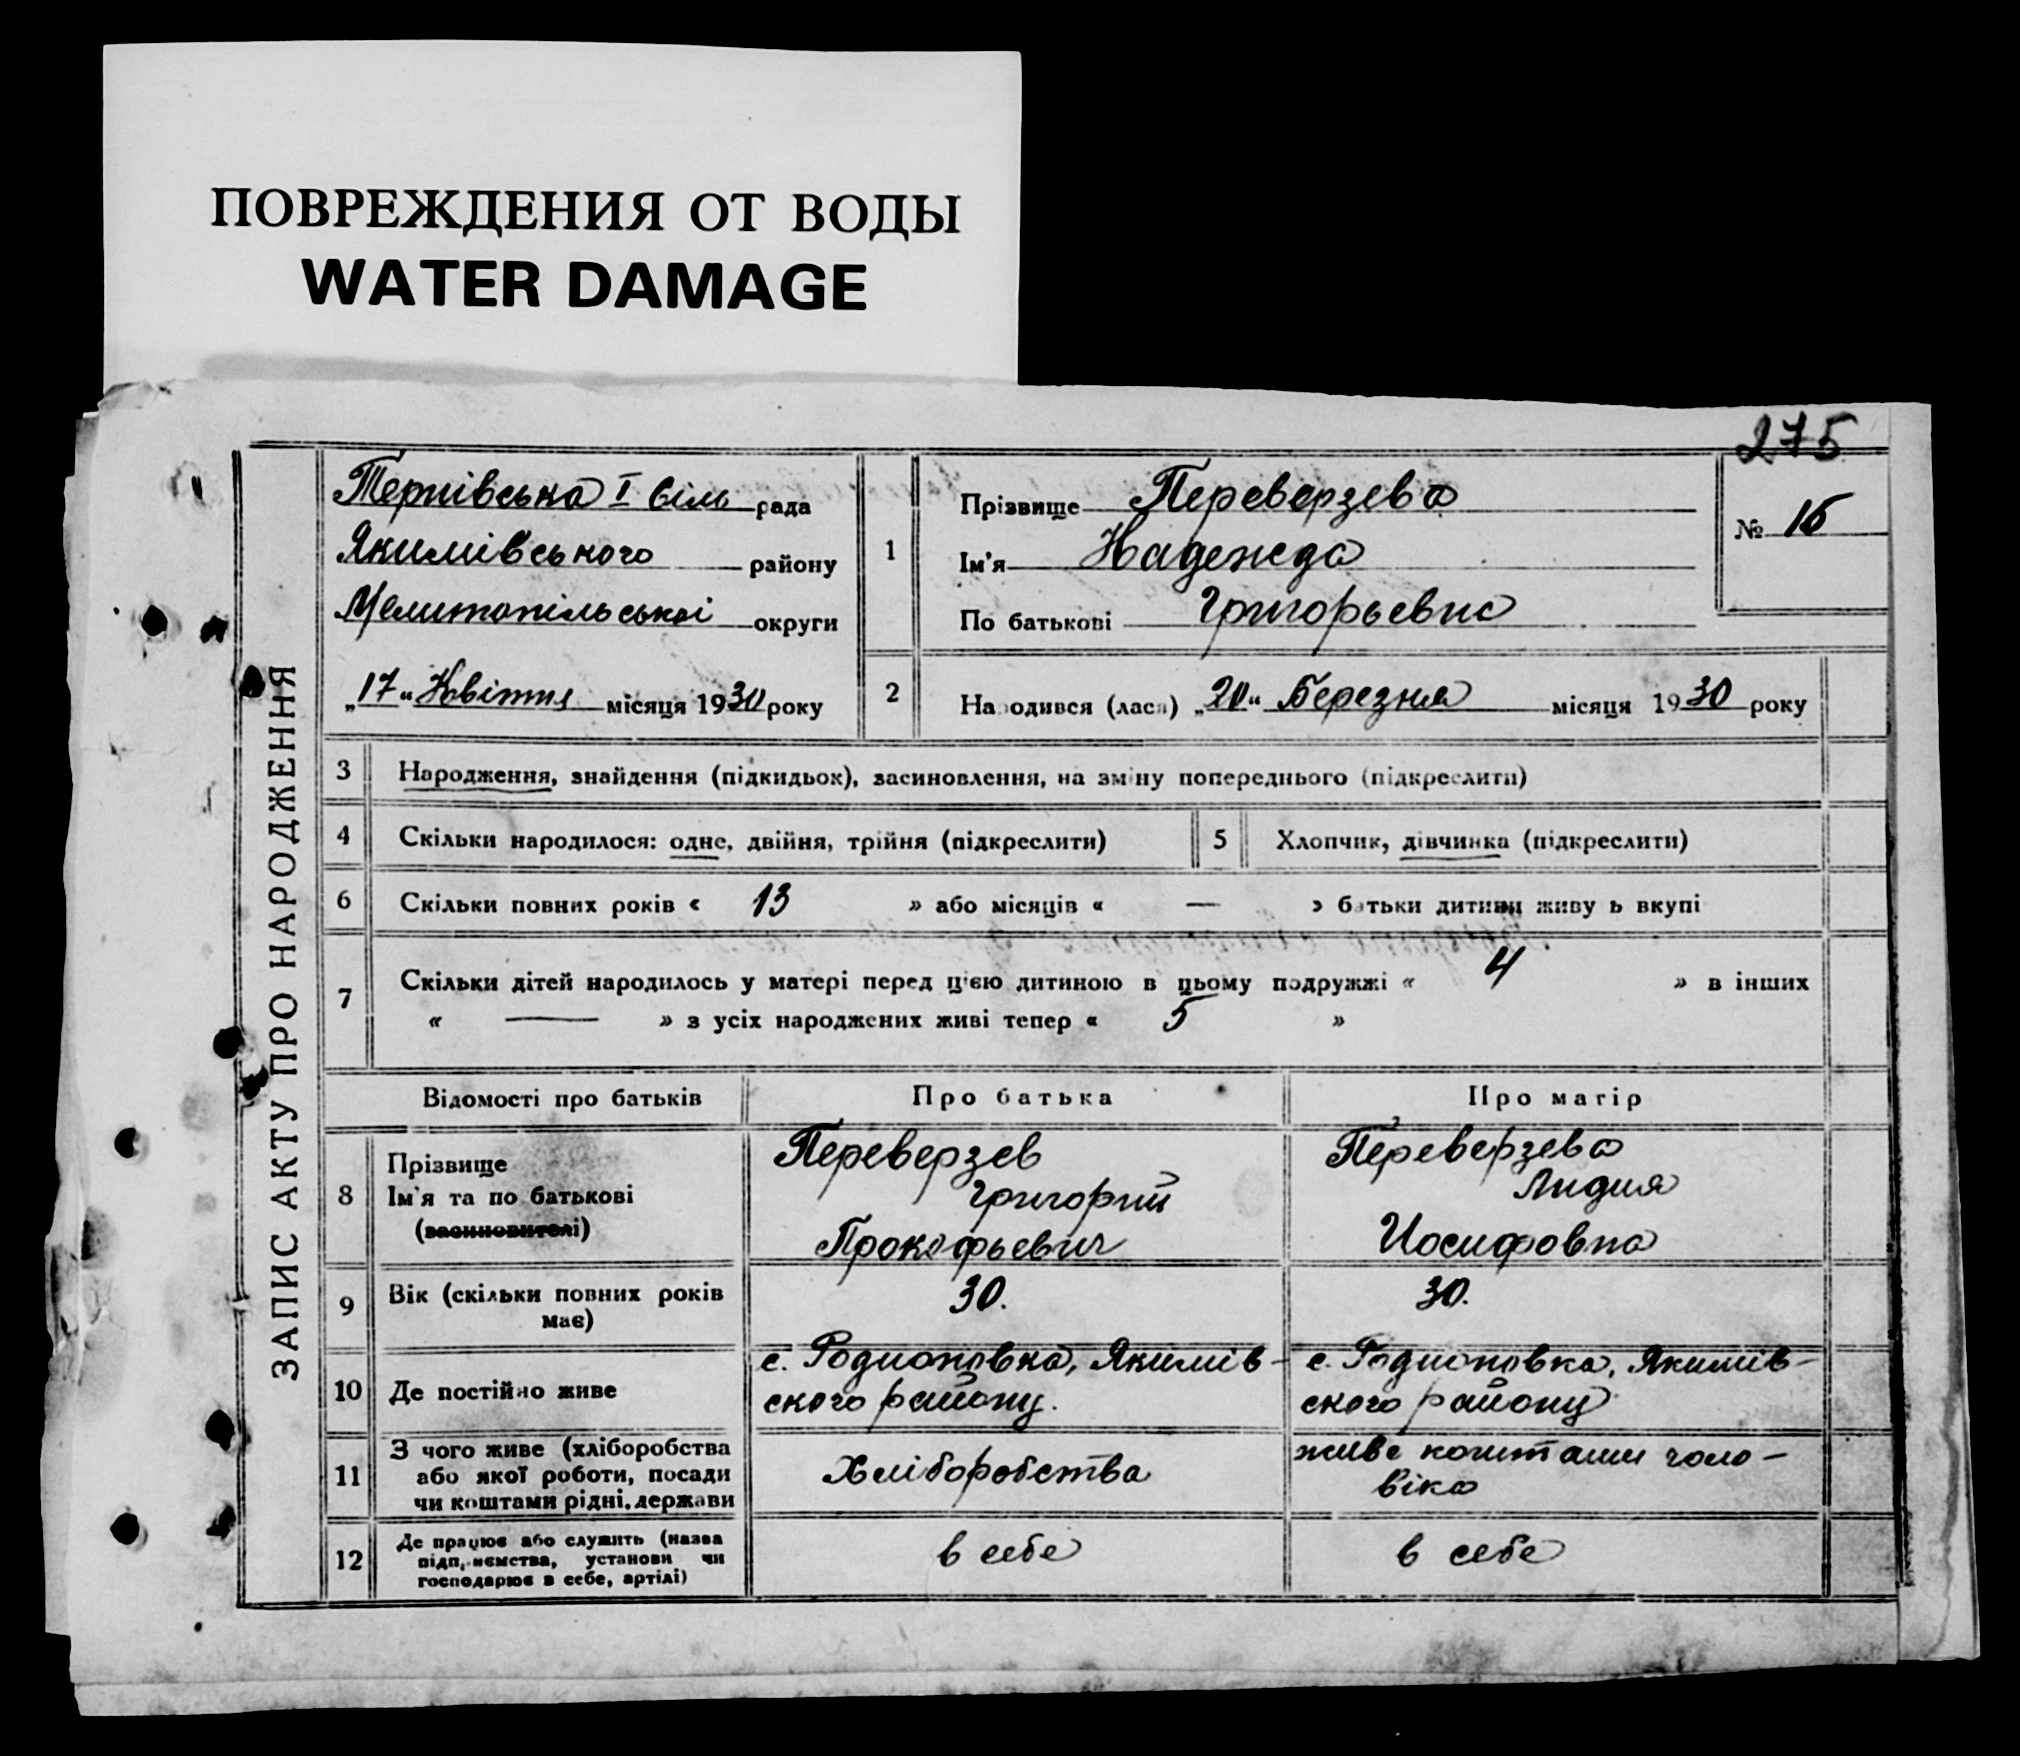 ПОВРЕЖДЕНИЯ ОТ ВОДЫ
WATER DAMAGE
275
ЗАПИС АКТУ ПРО НАРОДЖЕННЯ
Терпівська I сіль рада
Якимівського району
Мелитопільської округи
„17“ Квітня місяця 1930 року
1
Прізвище Переверзева
Ім'я Надежда
По батькові Григорьевна
№ 16
2
Народився (лася) „20“ Березня місяця 1930 року
3 Народження, знайдення (підкидьок), засиновлення, на зміну попереднього (підкреслити)
4 Скільки народилося: одне, двійня, трійня (підкреслити)
5 Хлопчик, дівчинка (підкреслити)
6 Скільки повних років « 13 » або місяців « — » батьки дитини живуть вкупі
7 Скільки дітей народилось у матері перед цією дитиною в цьому подружжі « 4 » в інших
« — » з усіх народжених живі тепер « 5 »
Відомості про батьків Про батька Про матір
8 Прізвище
Ім'я та по батькові
(засиновителі)
Переверзев
Григорий
Прокофьевич
Переверзева
Лидия
Иосифовна
9 Вік (скільки повних років
має)
30.
30.
10 Де постійно живе
с. Родионовка, Якимів-
ского району.
с. Родионовка, Якимів-
ского району
11 З чого живе (хліборобства
або якої роботи, посади
чи коштами рідні, держави
Хліборобства
живе коштами чоло-
віка
12 Де працює або служить (назва
підприємства, установи чи
господарює в себе, артілі)
в себе
в себе